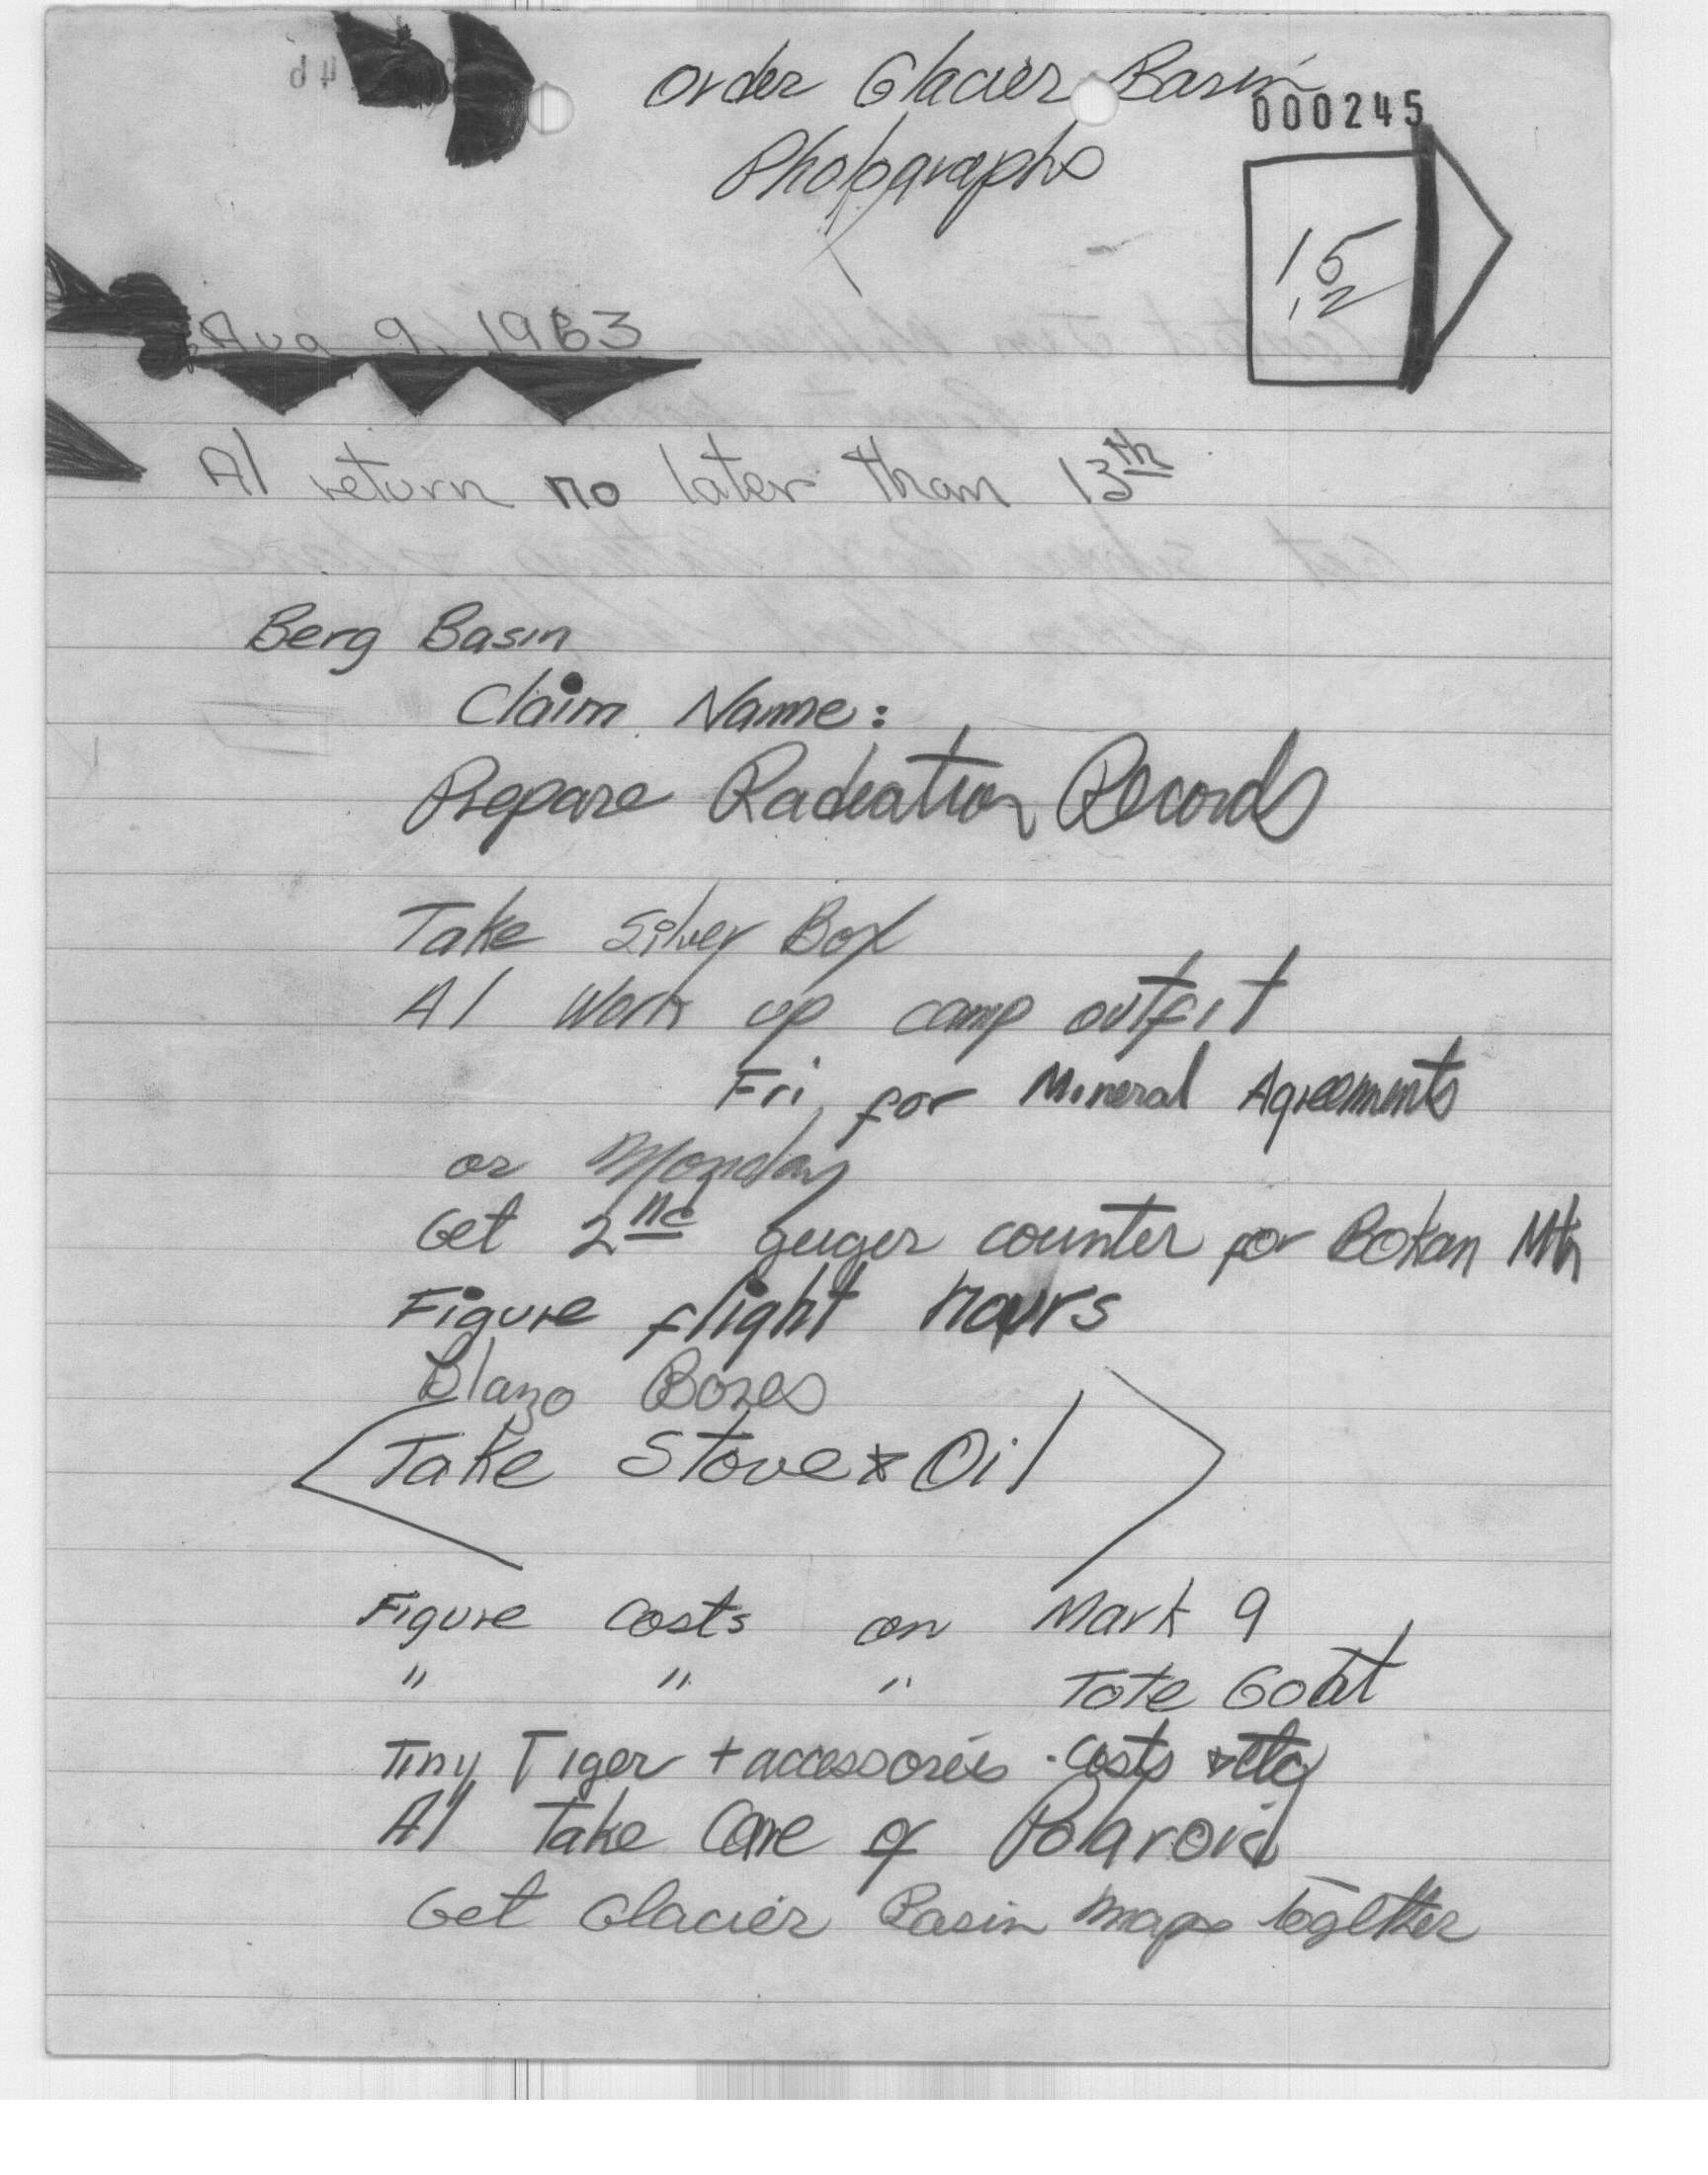 Order Glacier Basin
000245
Photographs
15
12
Aug 9, 1963
Al return no later than 13th
Berg Basin
Claim Name:
Prepare Radiation Records
Take Silver Box
Al Work up camp outfit
Fri, for Mineral Agreements
or Monday
Get 2nd geiger counter for Bokan Mtn
Figure flight hours
Blazo Boxes
Take Stove & Oil
Figure costs on Mark 9
" " " Tote Goat
Tiny Tiger + accessories - costs & etc
Al Take Care of Polaroid
Get Glacier Basin maps together